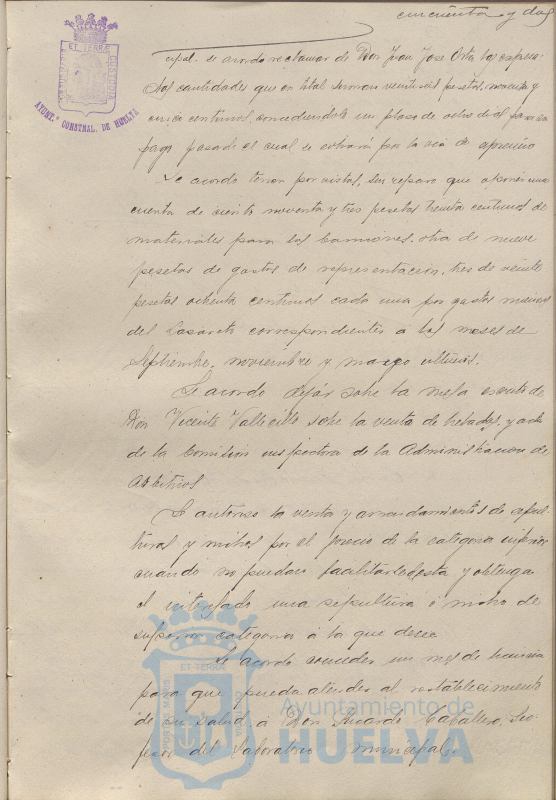 cincuenta y dos
cipal. se acordo reclamar de Don Juan Jose Orta las expresa
das cantidades que en total suman veintiseis pesetas, noventa y
cinco centimos, concediendole un plazo de ocho dias para su
pago pasado el cual se cobrará por la via de apremio
Se acordo tener por vistas, sin reparo que oponer una
cuenta de ciento noventa y tres pesetas treinta centimos de
materiales para los camiones, otra de nueve
pesetas de gastos de representacion, tres de veinte
pesetas ochenta centimos cada una por gastos menores
del Lazareto correspondientes á los meses de
Septiembre, noviembre y marzo ultimos.
Se acordo dejar sobre la mesa escrito de
Don Vicente Vallecillo sobre la venta de helados, y acta
de la Comision inspectora de la Administracion de
Arbitrios
Se autorizo la venta y arrendamientos de sepul-
turas y nichos por el precio de la categoria inferior
cuando no puedan facilitarle esta y obtenga
el interesado una sepultura ó nicho de
superior categoria á la que desee
Se acordo conceder un mes de licencia
para que pueda atender al restablecimiento
de su salud, á Don Ricardo Caballero, Pro-
fesor del Laboratorio Municipal.
AYUNT.º CONSTNAL. DE HUELVA
ET TERRÆ
CUSTODIA
PORTUS MARIS
ET TERRÆ
Ayuntamiento de
HUELVA